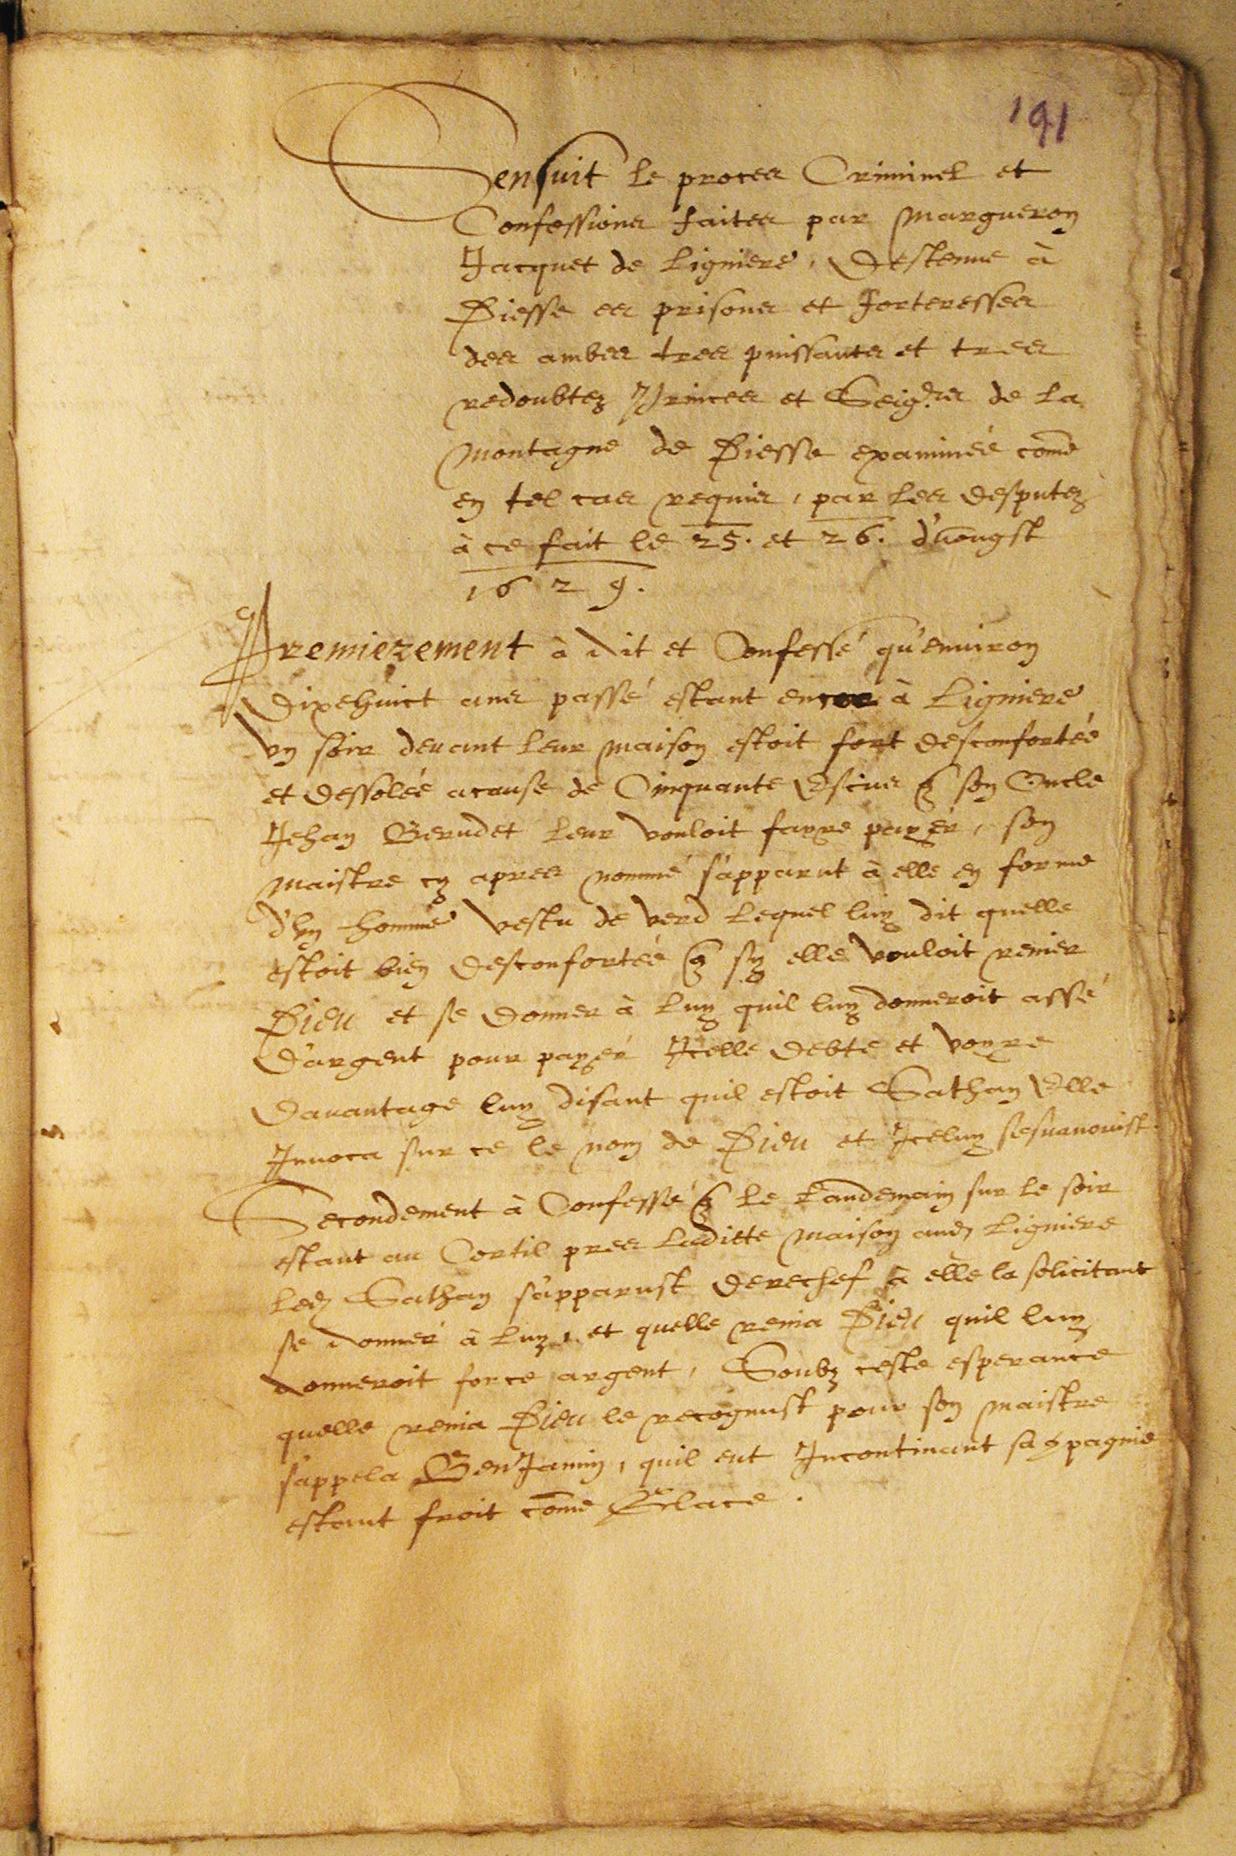 191
Sensuit le proces Criminel et
Confessions faites par Margueron
Jacquet de Ligniere, Destenue à
Diesse es prisons et forteresses
des ambes tres puissants et tres
redoubtez Princes et Seigrs de la
Montagne de Diesse examinée come
en tel cas requis, par les desputez
à ce fait le 25. et 26. d'Aougst
1629.
Premierement à dit et Confessé qu'environ
Dixehuict ans passé estant encor à Ligniere
Un soir devant leur maison estoit fort desconfortée
et dessolée acause de Cinquante Escus q son Oncle
Jehan Berudet leur vouloit fayre payér, son
Maistre cy apres nommé s'apparut à elle en forme
d'un homme vestu de verd Lequel luy dit quelle
estoit bien Desconfortée q sy elle vouloit renier
Dieu et se donner à Luy quil luy donneroit assé
D'argent pour payér Icelle Debte et voyre
Davantage luy disant quil estoit Sathan Elle
Invoca sur ce le nom de Dieu et Iceluy sesvanouist.
Secondement à Confessé q le Landemain sur le soir
estant au Cortil pres Laditte maison aud Ligniere
Led Sathan s'apparust derechef à elle la solicitant
se donner à Luy, et quelle renia Dieu quil luy
donneroit force argent, Soubz ceste esperance
quelle renia Dieu le recognust pour son maistre
s'appela BenJamin, quil eut Incontinant sa 9pagnie
estant froit come Glace.